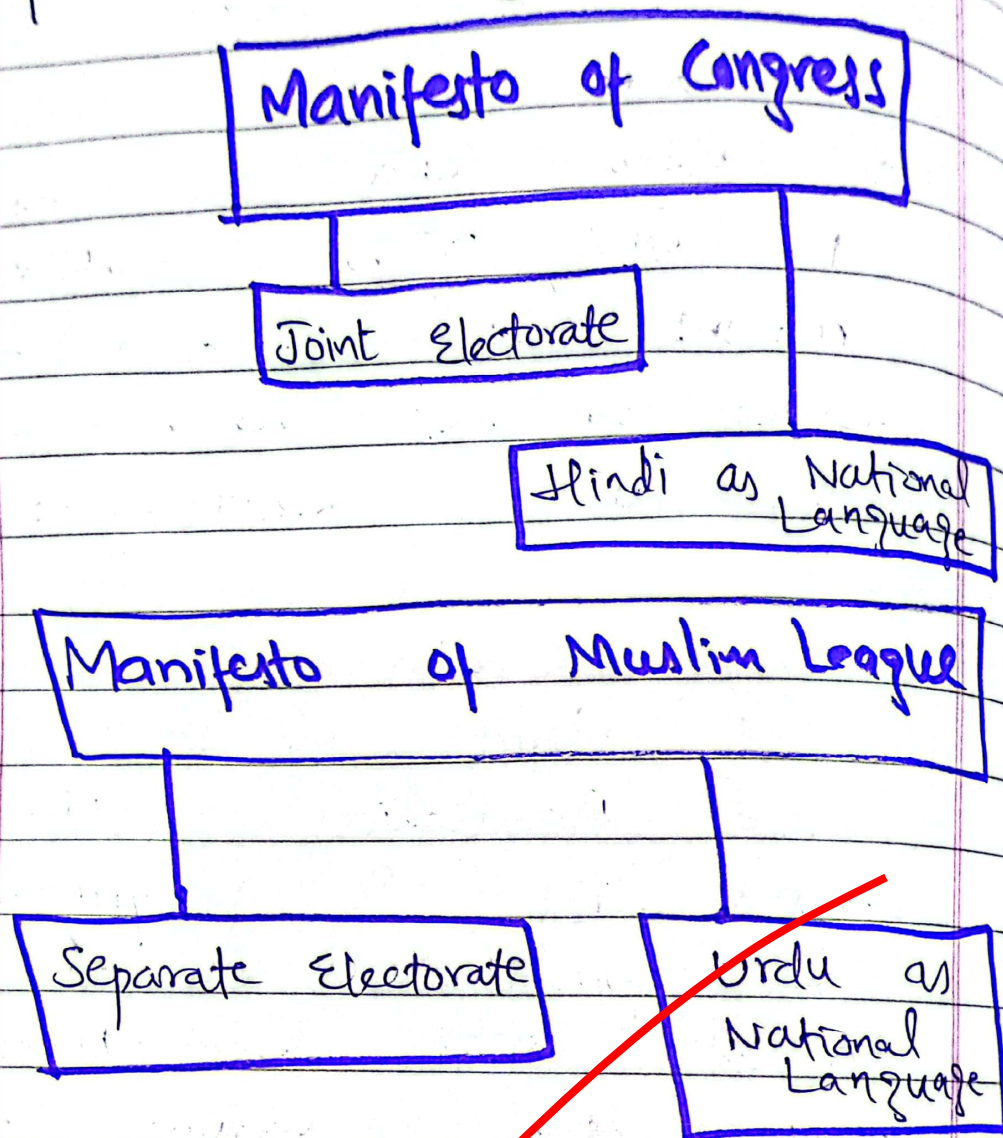 Manifesto of Congress
Joint Electorate
Hindi as National
Language
Manifesto of Muslim League
Separate Electorate
Urdu as
National
Language